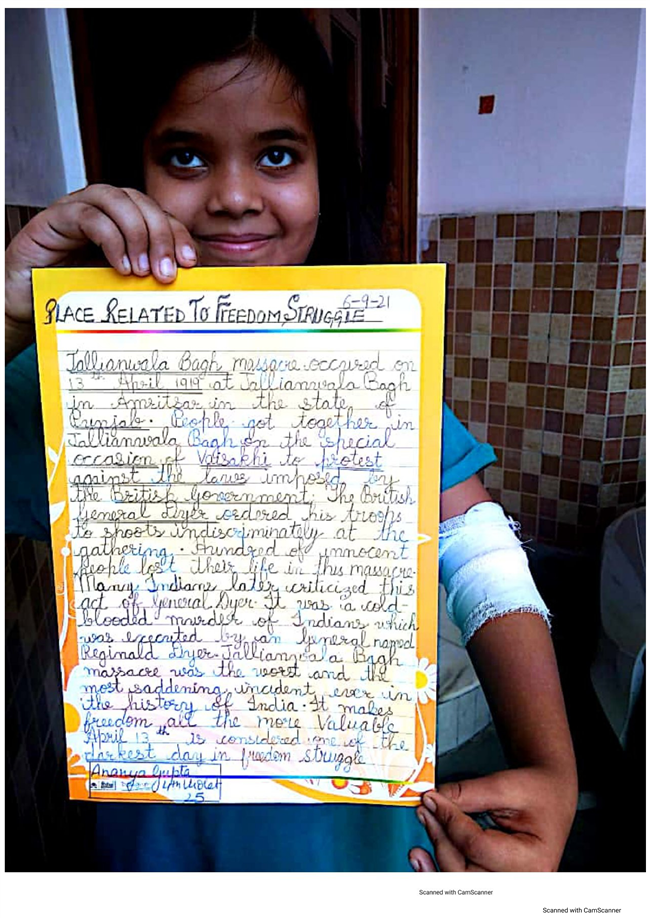 6-9-21
PLACE RELATED TO FREEDOM STRUGGLE
Jallianwala Bagh massacre occured on
13th April 1919 at Jallianwala Bagh
in Amritsar in the state of
Punjab. People got together in
Jallianwala Bagh on the special
occasion of Vaisakhi to protest
against the laws imposed by
the British Government. The British
General Dyer ordered his troops
to shoots indiscriminately at the
gathering. Hundred of innocent
people lost their life in this massacre.
Many Indians later criticized this
act of General Dyer. It was a cold-
blooded murder of Indians which
was executed by an General named
Reginald Dyer. Jallianwala Bagh
massacre was the worst and the
most saddening incident ever in
the history of India. It makes
freedom all the more Valuable
April 13th is considered one of the
darkest day in freedom struggle
Ananya Gupta
25
Scanned with CamScanner
Scanned with CamScanner